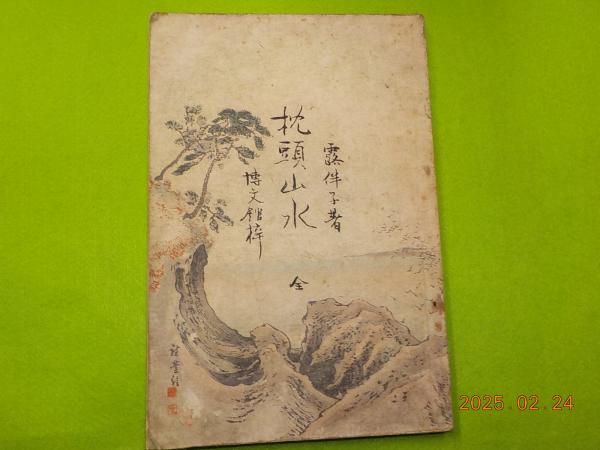 露伴子著
枕頭山水
全
博文館梓
2025.02.24